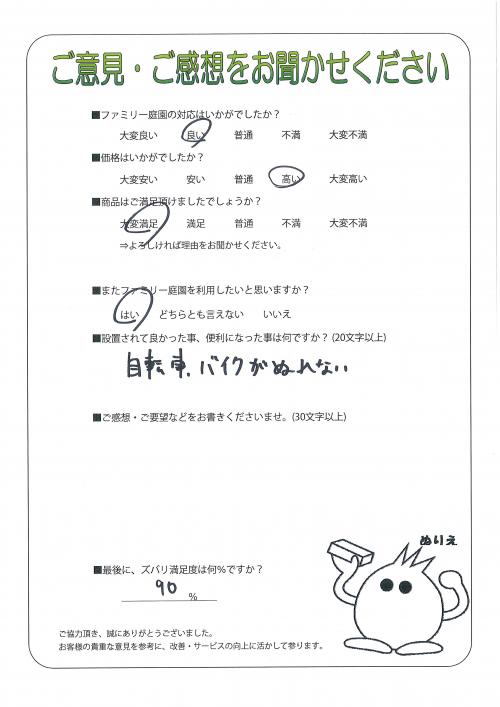 ご意見・ご感想をお聞かせください
■ファミリー庭園の対応はいかがでしたか？
大変良い 良い 普通 不満 大変不満
■価格はいかがでしたか？
大変安い 安い 普通 高い 大変高い
■商品はご満足頂けましたでしょうか？
大変満足 満足 普通 不満 大変不満
⇒よろしければ理由をお聞かせください。
■またファミリー庭園を利用したいと思いますか？
はい どちらとも言えない いいえ
■設置されて良かった事、便利になった事は何ですか？(20文字以上)
自転車、バイクがぬれない
■ご感想・ご要望などをお書きくださいませ。(30文字以上)
ぬりえ
■最後に、ズバリ満足度は何%ですか？
90 %
ご協力頂き、誠にありがとうございました。
お客様の貴重な意見を参考に、改善・サービスの向上に活かして参ります。